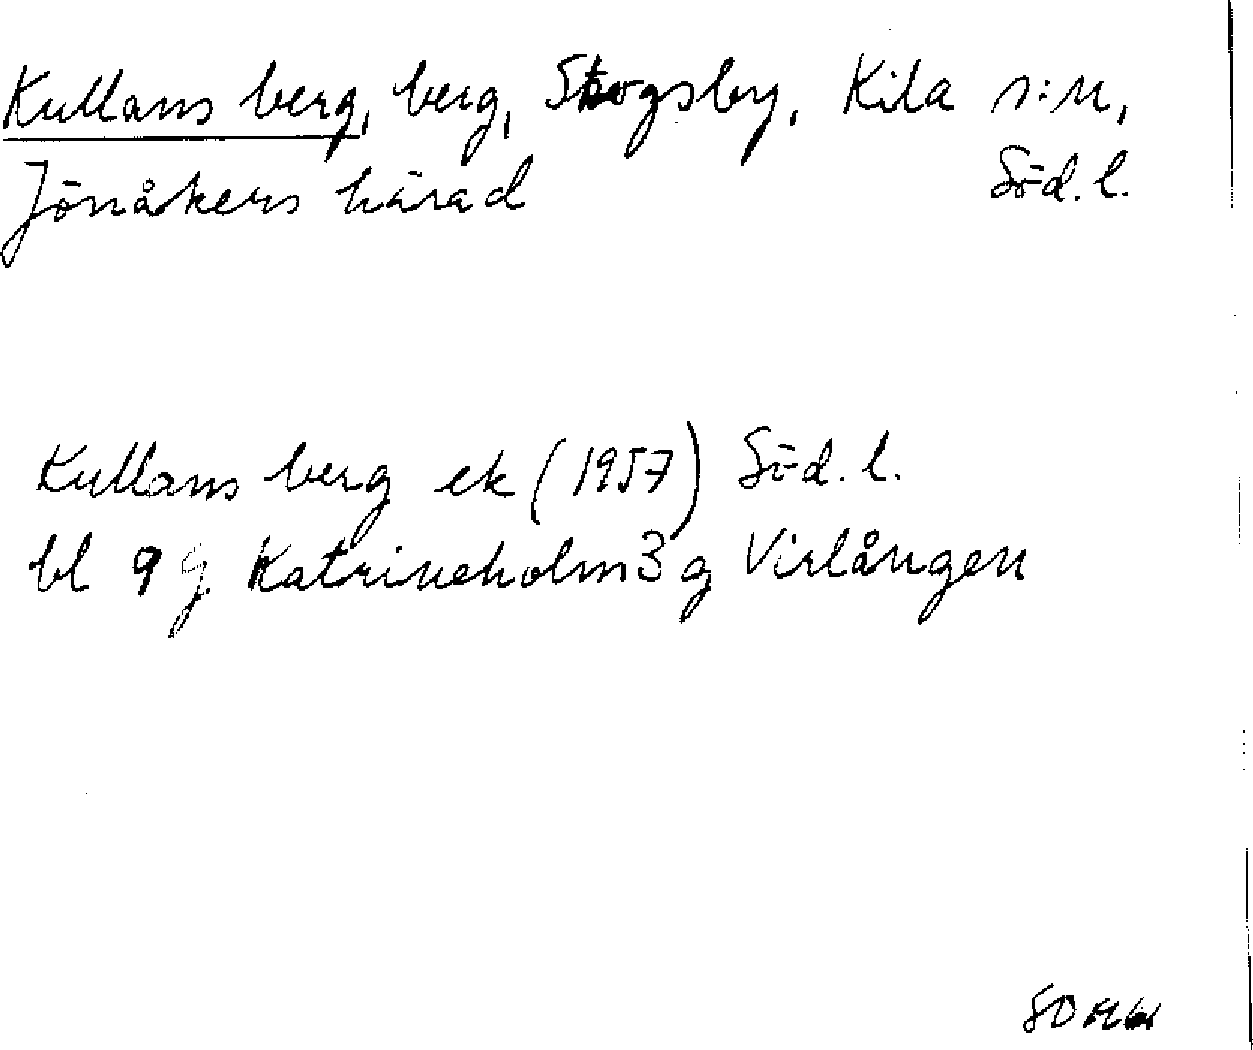 Kullans berg, berg, Skogsby, Kila s:n,
Jönåkers härad Söd. l.
Kullans berg ek (1957) Söd. l.
bl 9 g Katrineholm 3 g Virlången
SO